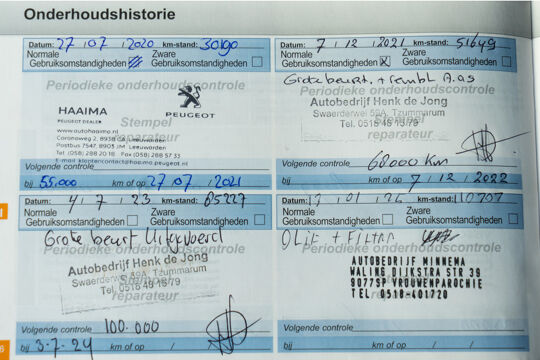 Onderhoudshistorie
Datum: 27 / 07 / 2020 km-stand: 30190
Normale Gebruiksomstandigheden
Zware Gebruiksomstandigheden
Periodieke onderhoudscontrole
HAAIMA
PEUGEOT DEALER
PEUGEOT
Stempel
reparateur
www.autohaaima.nl
Coronaweg 2, 8938 Leeuwarden
Postbus 7547, 8903 JM Leeuwarden
Tel (058) 288 20 18 Fax (058) 288 57 33
Volgende controle
bij 55.000 km of op 27 / 07 / 2021
Datum: 7 / 12 / 2021 km-stand: 51649
Normale Gebruiksomstandigheden
Zware Gebruiksomstandigheden
Grote beurt. + rembl A.as
Periodieke onderhoudscontrole
Autobedrijf Henk de Jong
Swaerderwei 59A, Tzummarum
Stempel
Tel. 0518 481579
reparateur
Volgende controle 68000 km
bij km of op 7 / 12 / 2022
Datum: 4 / 7 / 23 km-stand: 85227
Normale Gebruiksomstandigheden
Zware Gebruiksomstandigheden
Grote beurt Uitgevoerd
Periodieke onderhoudscontrole
Autobedrijf Henk de Jong
Swaerderwei 59A, Tzummarum
Stempel
Tel. 0518 481579
reparateur
Volgende controle 100.000
bij 3-7-24 km of op / /
Datum: / 01 / km-stand: 110707
Normale Gebruiksomstandigheden
Zware Gebruiksomstandigheden
OLIE + FILTER
Periodieke onderhoudscontrole
AUTOBEDRIJF MINNEMA
WALING DIJKSTRA STR 39
9077SP VROUWENPAROCHIE
TEL 0518-401720
reparateur
Volgende controle
bij km of op / /